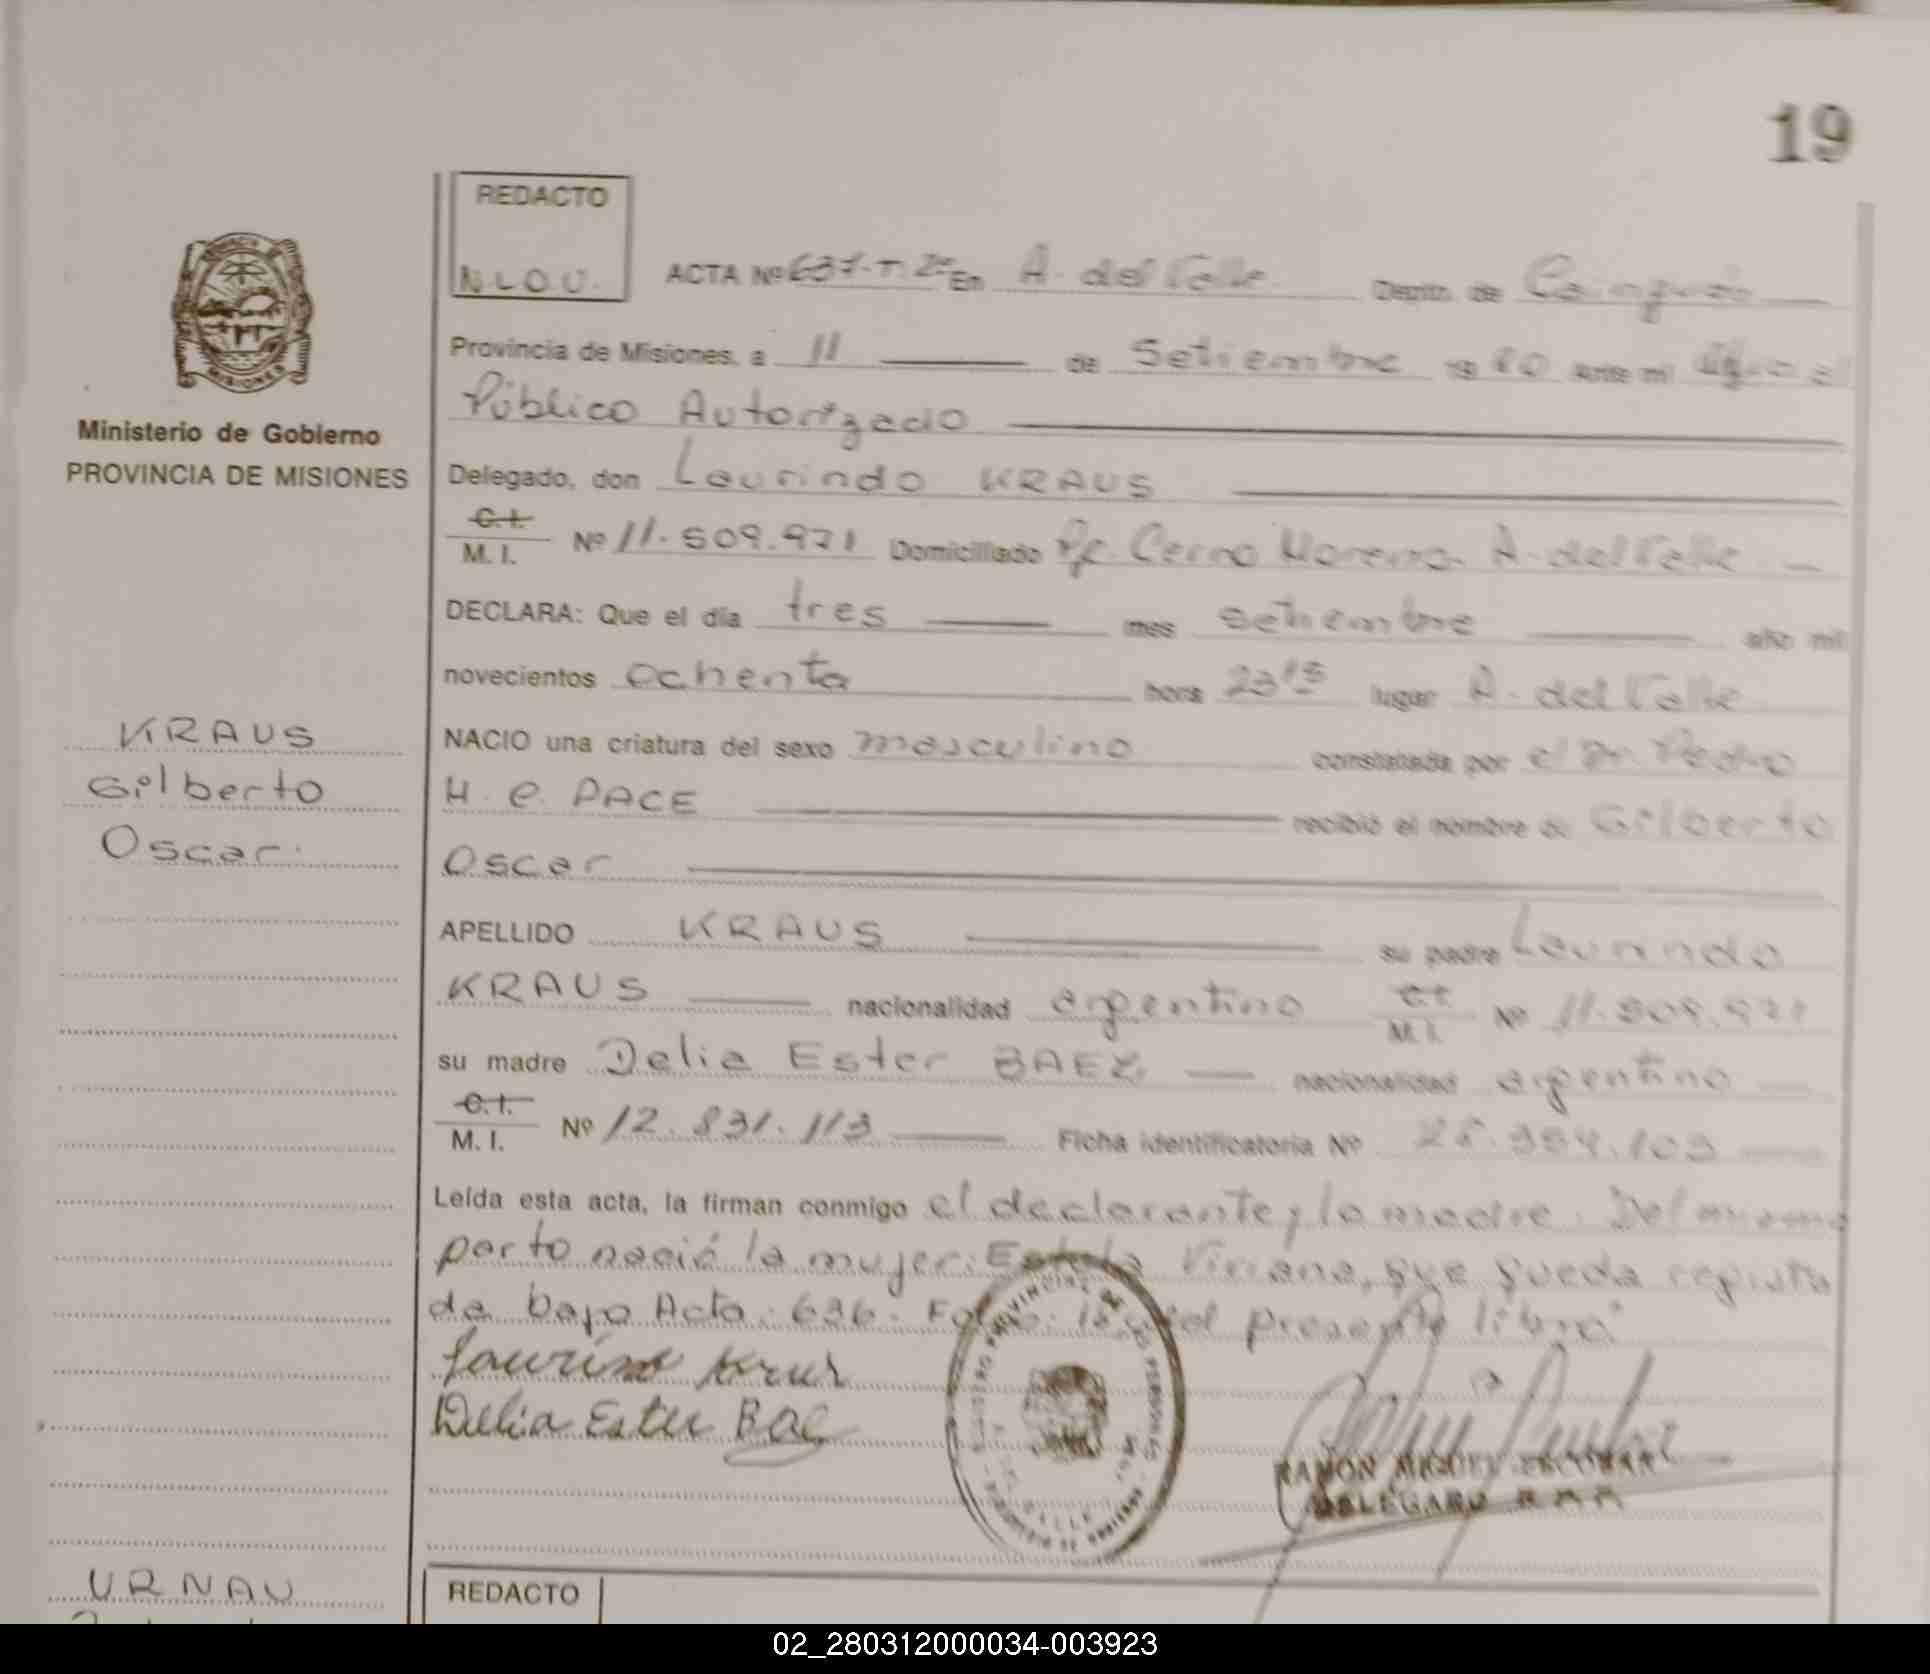 19
REDACTO
N.L.O.U.
ACTA Nº 637-T. 2º En A. del Valle Depto. de Cainguás
Provincia de Misiones, a 11 de Setiembre 19 80 Ante mi
Público Autorizado
Ministerio de Gobierno
PROVINCIA DE MISIONES
Delegado, don Laurindo KRAUS
C.I.
M.I. Nº 11.509.971 Domiciliado Pje Cerro Moreno- A. del Valle
DECLARA: Que el día tres mes setiembre año mil
novecientos ochenta hora 23 15 lugar A. del Valle
KRAUS
Gilberto
Oscar.
NACIO una criatura del sexo masculino constatada por el Dr. Pedro
H. C. PACE recibió el nombre de Gilberto
Oscar
APELLIDO KRAUS su padre Laurindo
KRAUS nacionalidad argentino C.I.
M.I. Nº 11.509.971
su madre Delia Ester BAEZ nacionalidad argentino
C.I.
M.I. Nº 12.831.113 Ficha identificatoria Nº
Leída esta acta, la firman conmigo el declarante y la madre. Del mismo
parto nació la mujer: Estela Viviana, que queda registra
da bajo Acta: 636. Folio: del presente libro
Delia Ester Bae
RAMON MIGUEL ESCOBAR
DELEGADO
URNAU
REDACTO
02_280312000034-003923